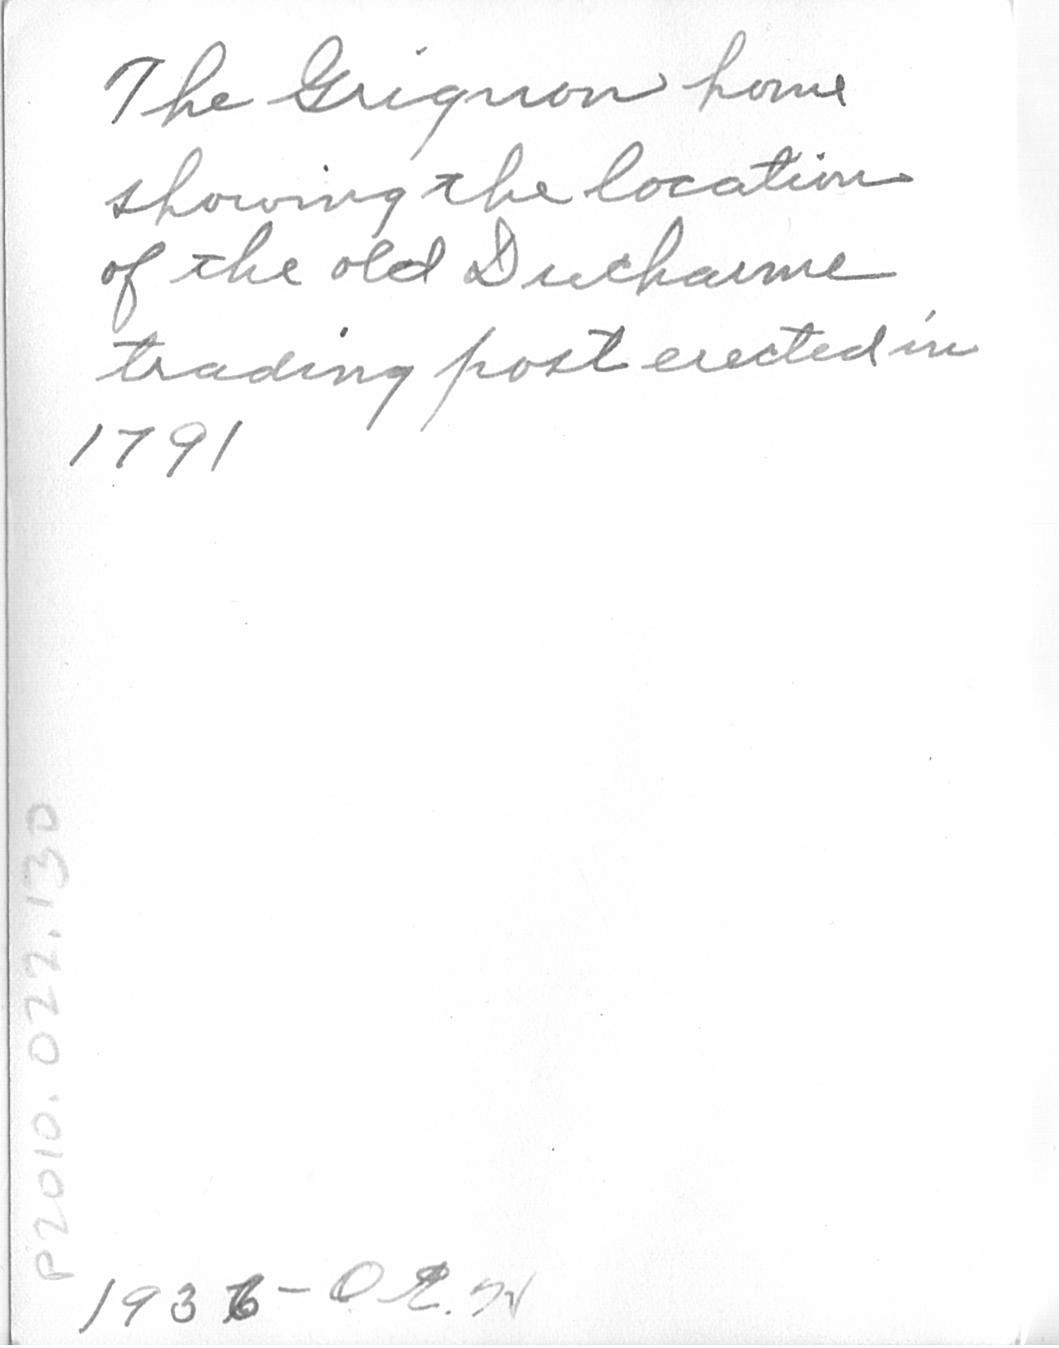 The Grignon home
showing the location
of the old Ducharme
trading post erected in
1791
P2010.022.130
1936 - O.